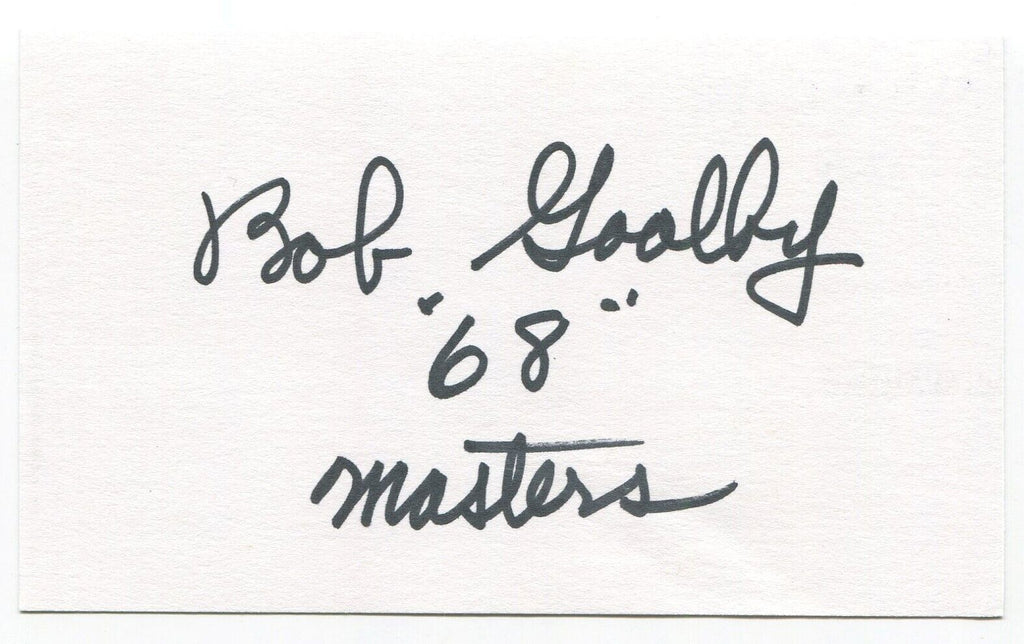 Bob Goalby
"68"
Masters